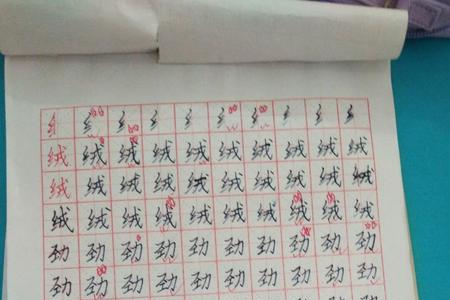 纟纟纟纟纟纟纟纟纟纟
绒绒绒绒绒绒绒绒绒绒
绒绒绒绒绒绒绒绒绒绒
绒绒绒绒绒绒绒绒绒绒
劲劲劲劲劲劲劲劲劲劲
劲劲劲劲劲劲劲劲劲劲